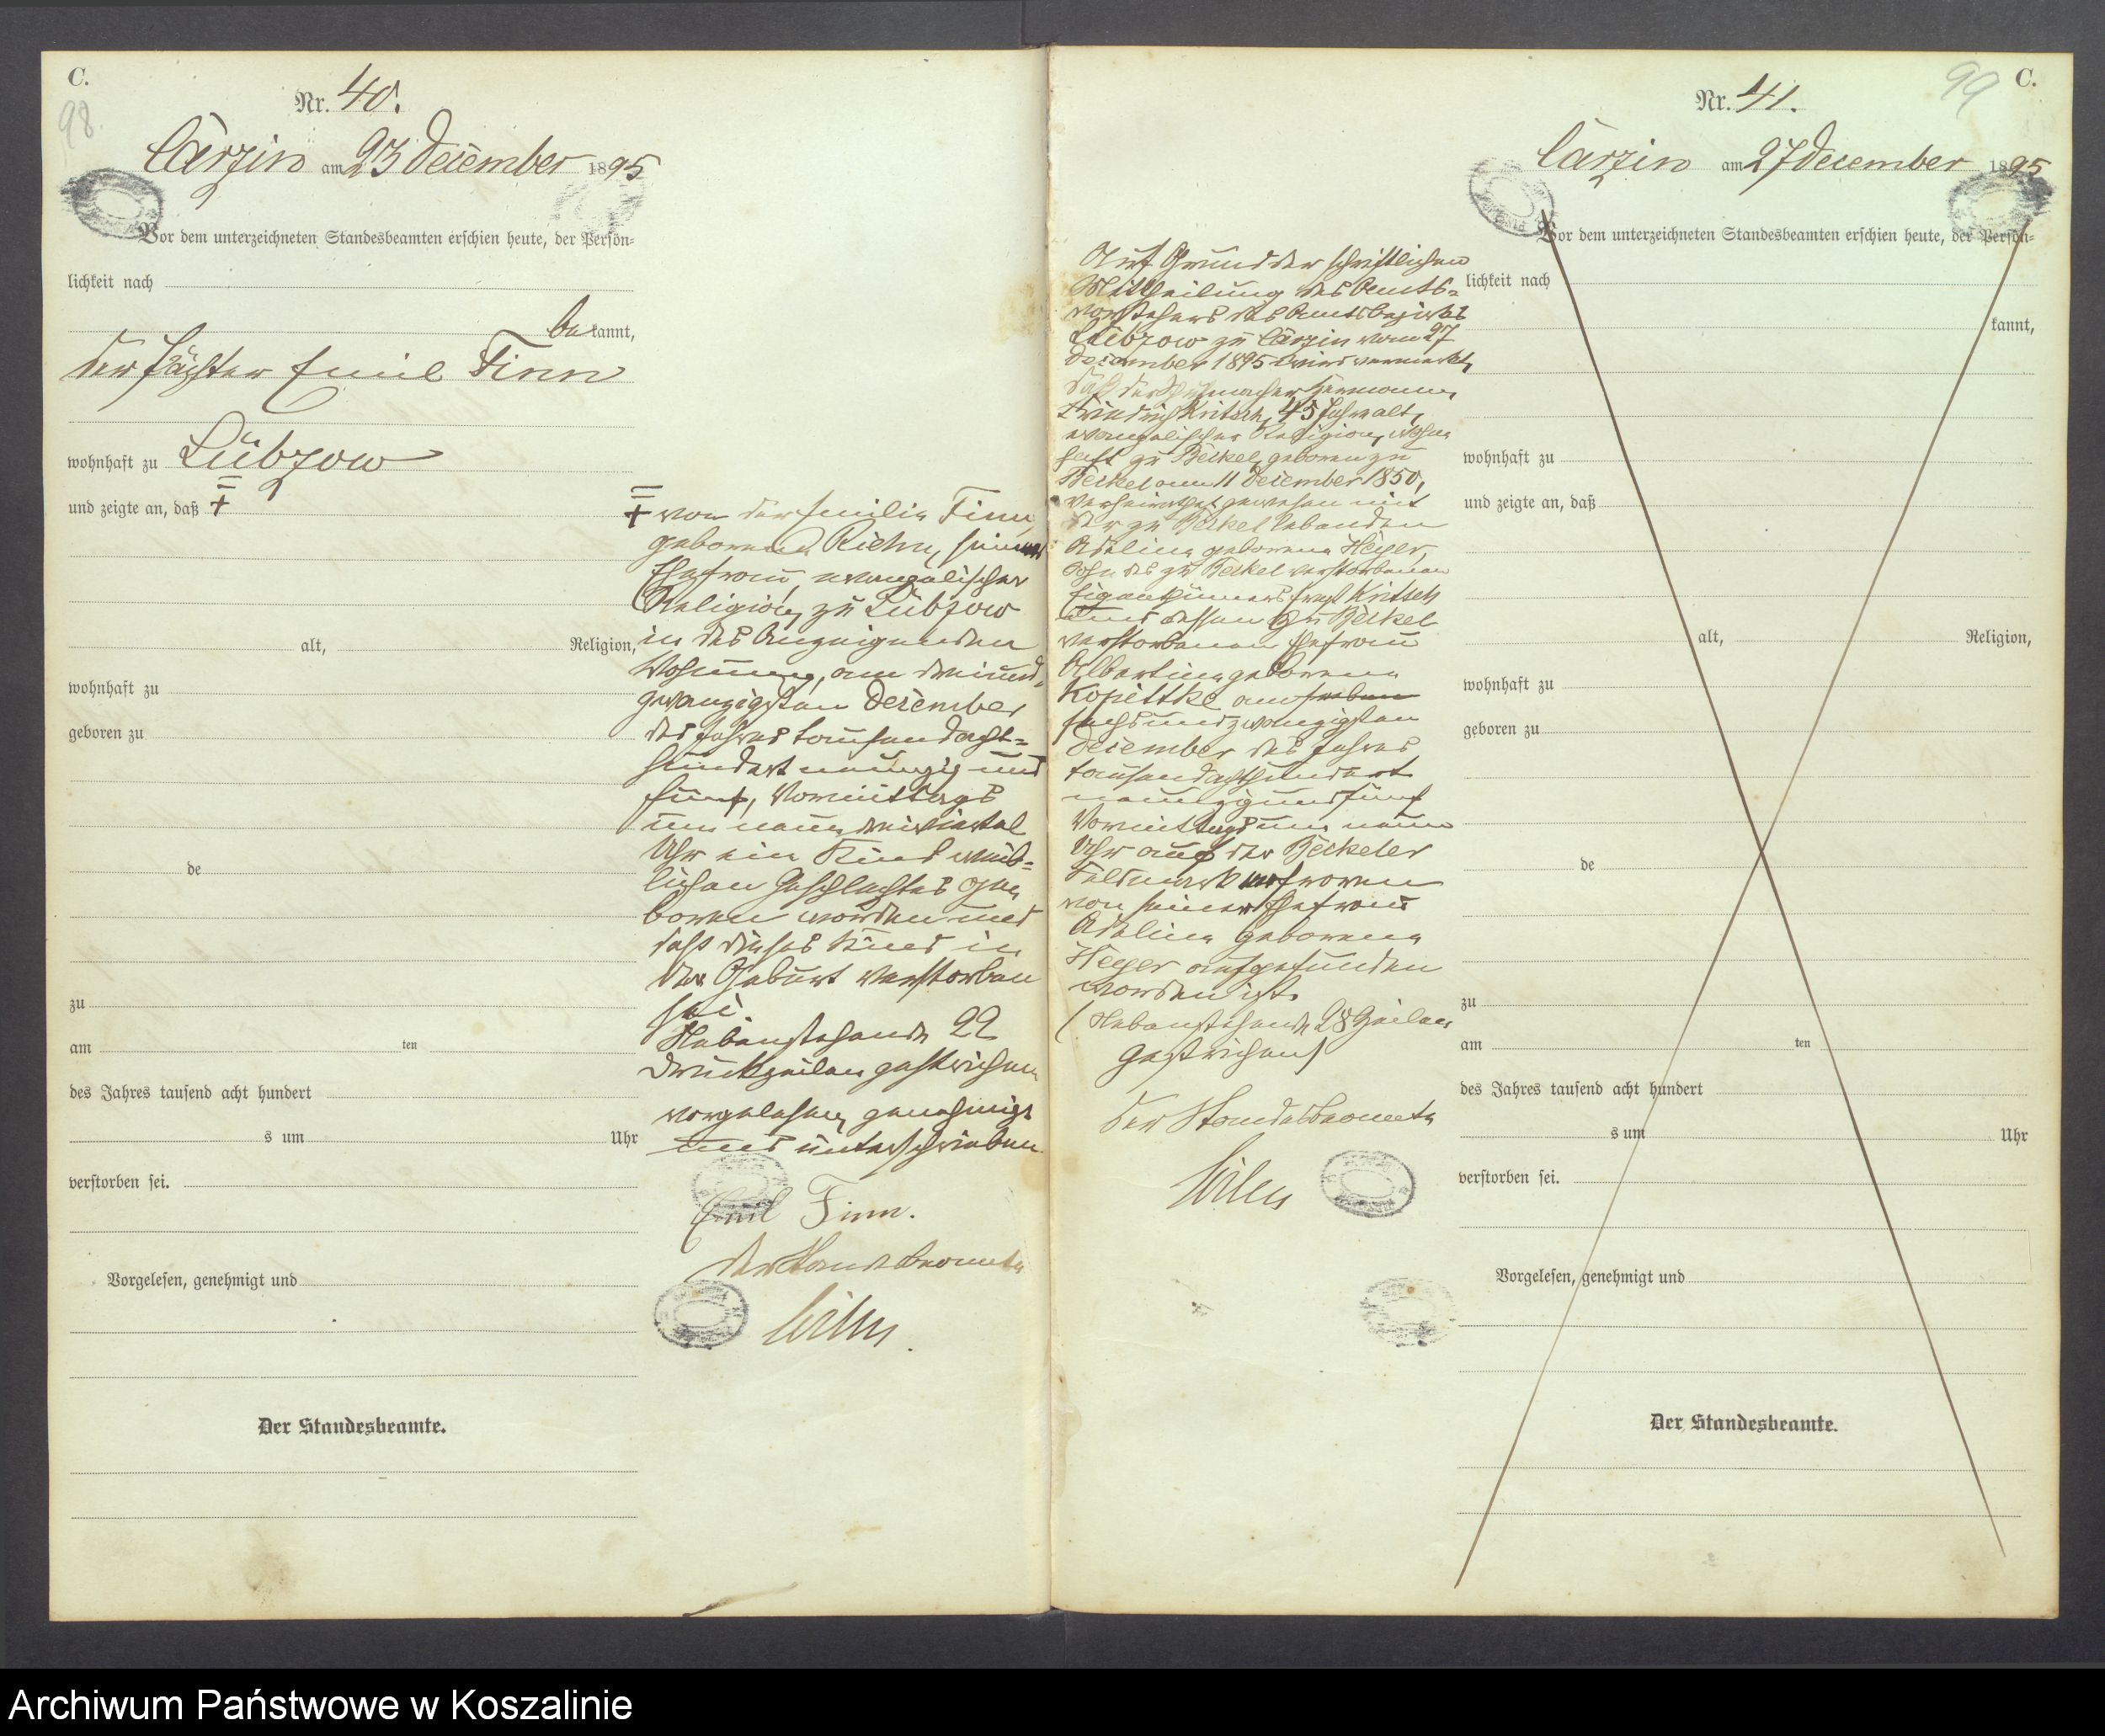 C.
98.
Nr. 40.
Cärzin am 23 December 1895
Vor dem unterzeichneten Standesbeamten erschien heute, der Persön-
lichkeit nach
be kannt,
der Pächter Emil Finn
wohnhaft zu Lübzow
und zeigte an, daß
alt, Religion,
wohnhaft zu
geboren zu
de
zu
am ten
des Jahres tausend acht hundert
s um Uhr
verstorben sei.
Vorgelesen, genehmigt und
Der Standesbeamte.
von der Emilie Finn
geborene Riehn, seiner
Ehefrau, evangelischer
Religion, zu Lübzow
in des Anzeigenden
Wohnung, am dreiund-
zwanzigsten December
des Jahres tausend acht-
hundert neunzig und
fünf, Vormittags
um neun dreiviertel
Uhr ein Kind weib-
lichen Geschlechtes ge-
boren worden und
daß dieses Kind in
der Geburt verstorben
sei.
Nebenstehende 22
Druckzeilen gestrichen
vorgelesen, genehmigt
und unterschrieben
Emil Finn.
der Standesbeamte
Auf Grund der schriftlichen
Mittheilung des Amts-
vorstehers des Amtsbezirks
Lübzow zu Cärzin vom 27
December 1895 wird vermerkt,
daß der Hermann
Friedrich Kritsch, 45 Jahr alt,
evangelischer Religion, wohn-
haft zu Beckel, geboren zu
Beckel am 11 December 1850,
verheirathet gewesen mit
der zu Beckel lebenden
Adeline geborene Heyer,
Sohn des zu Beckel verstorbenen
Eigenthümers Kritsch
und dessen zu Beckel
verstorbenen Ehefrau
Albertine geborene
Kopittke am
sechsundzwanzigsten
December des Jahres
tausend achthundert
neunzig und fünf
Vormittags um neun
Uhr auf der Beckeler
Feldmark erfroren
von seiner Ehefrau
Adeline geborene
Heyer aufgefunden
worden ist.
(Nebenstehende 28 Zeilen
gestrichen)
Der Standesbeamte
99
C.
Nr. 41.
Cärzin am 27 December 1895
Vor dem unterzeichneten Standesbeamten erschien heute, der Persön-
lichkeit nach
kannt,
wohnhaft zu
und zeigte an, daß
alt, Religion,
wohnhaft zu
geboren zu
de
zu
am ten
des Jahres tausend acht hundert
s um Uhr
verstorben sei.
Vorgelesen, genehmigt und
Der Standesbeamte.
Archiwum Państwowe w Koszalinie